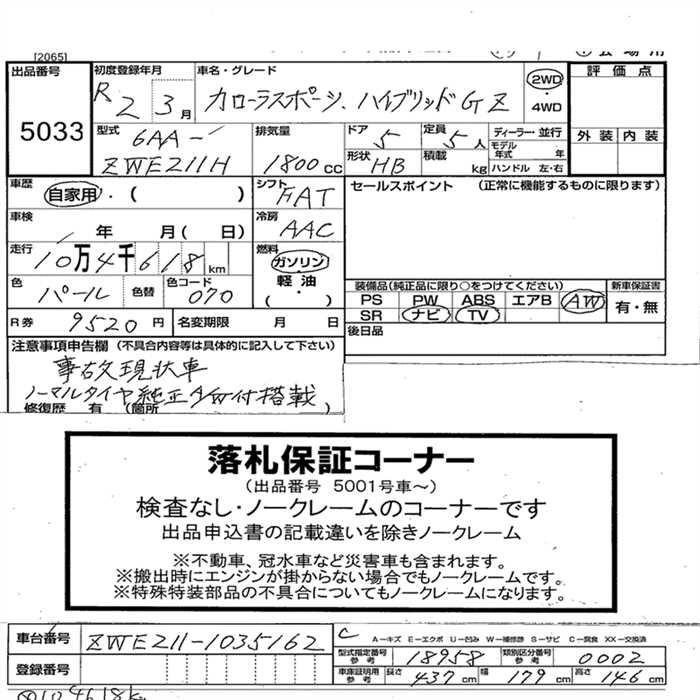 [2065]
出品番号
5033
初度登録年月
R2 3月
車名・グレード
カローラスポーツ、ハイブリッドGZ
2WD
・
4WD
評価点
外装 内装
型式
6AA-
ZWE211H
排気量
1800cc
ドア 5
定員 5人
形状 HB
積載 kg
ディーラー・並行
モデル年式 年
ハンドル 左・右
車歴
自家用・( )
シフト FAT
セールスポイント (正常に機能するものに限ります)
車検
年 月( 日)
冷房 AAC
走行
10万4千618km
燃料
ガソリン
軽油
( ・ )
色 パール
色替
色コード 070
装備品(純正品に限り○をつけてください)
新車保証書
PS PW ABS エアB AW
SR ナビ TV
有・無
R券 9520円
名変期限 月 日
後日品
注意事項申告欄(不具合内容等は具体的に記入して下さい)
事故現状車
ノーマルタイヤ純正A/W付搭載
修復歴 有 (箇所
落札保証コーナー
(出品番号 5001号車～)
検査なし・ノークレームのコーナーです
出品申込書の記載違いを除きノークレーム
※不動車、冠水車など災害車も含まれます。
※搬出時にエンジンが掛からない場合でもノークレームです。
※特殊特装部品の不具合についてもノークレームになります。
車台番号 ZWE211-1035162
C A－キズ E－エクボ U－凹み W－補修跡 S－サビ C－腐食 XX－交換済
型式指定番号 参考 18958
類別区分番号 参考 0002
登録番号
車庫証明用 参考 長さ 437cm 幅 179cm 高さ 146cm